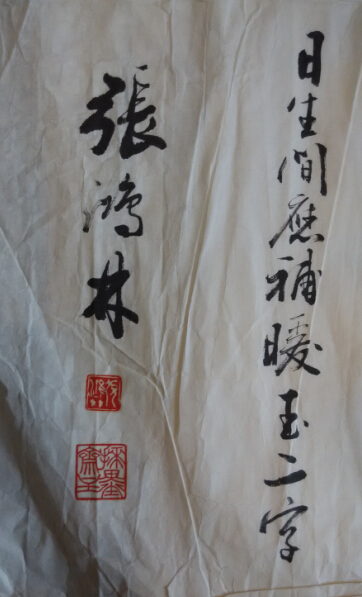 日生間應補暖玉二字
張鴻林